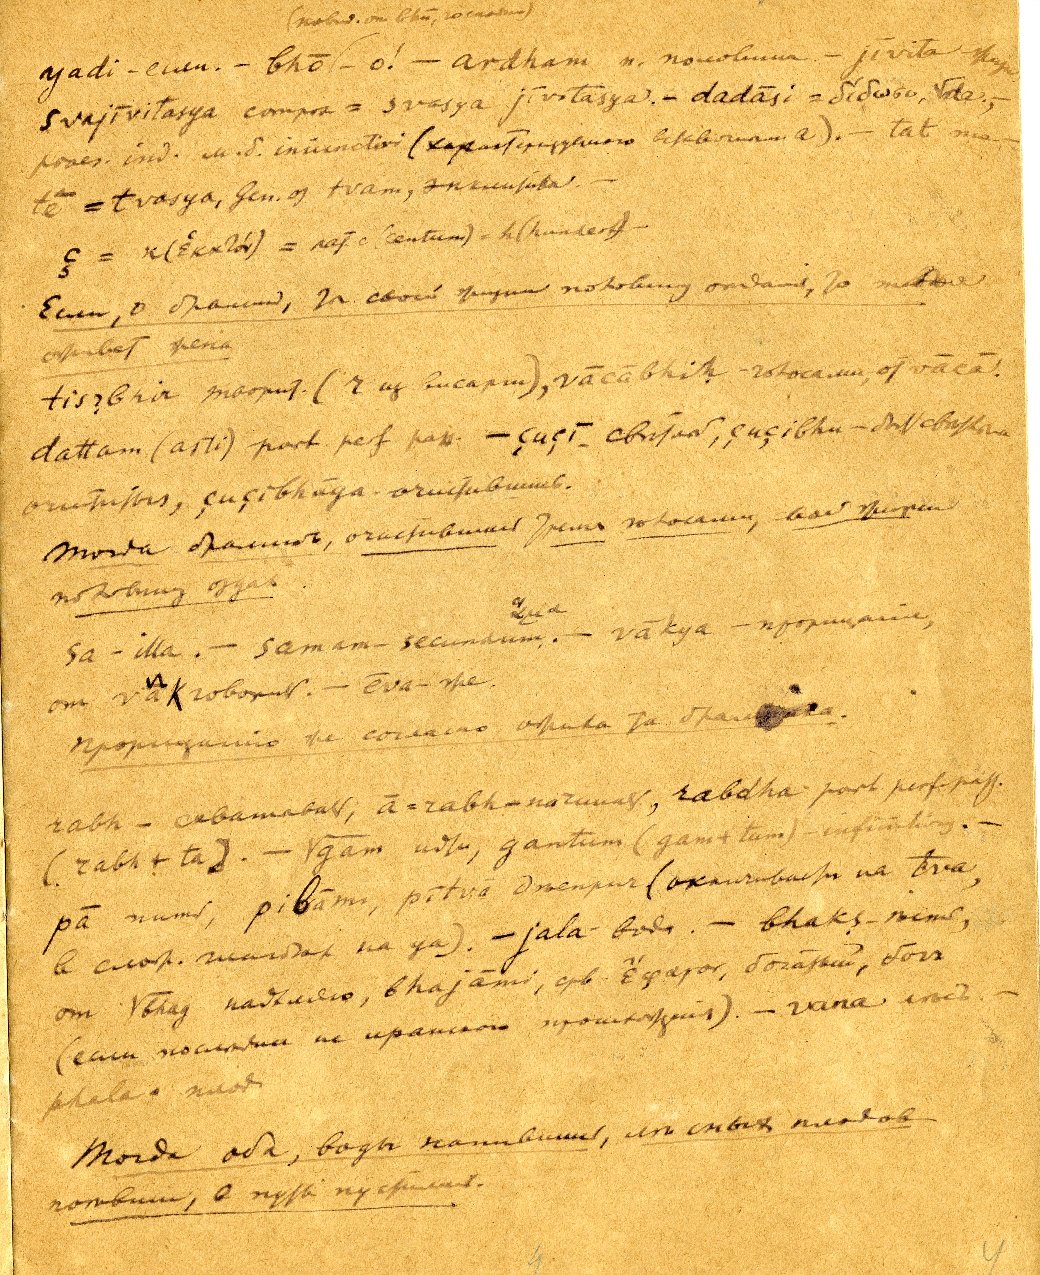 yadi – если. – bhō – о! – ardham n. половина – jīvita –
svajīvitasya compos = svasya jīvitasya. – dadāsi = δίδωσι, √da, –
ind. м.б. iniunctivi (характеризующего a). – tat
tē = tvasya, gen. of tvam,
ç = κ (ἑκατόν) = лат. c (centum) – h (hundert) –
Если, о брамин, за своей жизни половину отдашь, то
оживет жена
tisṛbhir творит. (r из), vācābhiḥ – голосами, от vācā.
dattam (asti) part. perf. pass. – çuçi – святой, çuçibhu –
очиститься, çuçibhūya – очистившись.
Тогда брамин, очистившись тремя голосами, жизни
половину отдал.
sa – illa. – samam – secundum. – vākya – прорицание,
от vāk говорить. – ēva – же.
Прорицанию же согласно ожила та
rabh – схватывать, ā = rabh – начинать, rabdha part. perf. pass.
(rabh + ta). – √gam идти, gantum (gam + tum) – infinitiv. –
pā пить, pibāmi, pītvā (оканчивается на tva,
в слож. на ya). – jala – вода. – bhakṣ –
от √bhag наделяю, bhajāmi, срв. ἔφαγον, богатый, бог
(если последнее не иранского происхождения). – vana лес. –
phala – плод
Тогда оба, воды напившись, лесных плодов
поевши, в путь пустились.
4